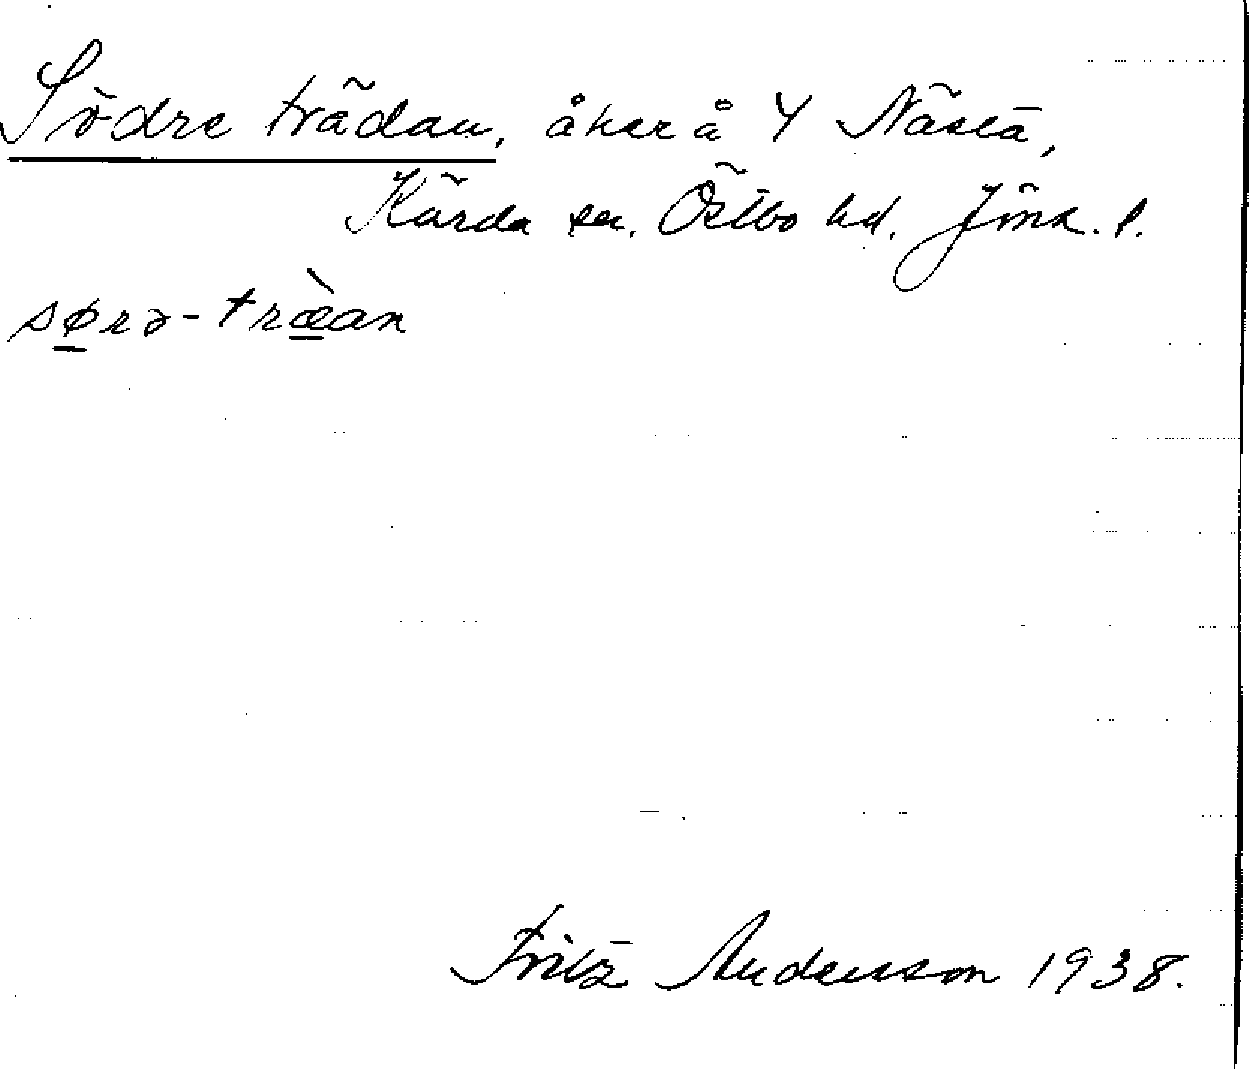 Södre trädan, åker å Y Nästa,
Kärda sn. Östbo hd. Jönk. l.
sørə-træ̀an
Fritz Andersson 1938.